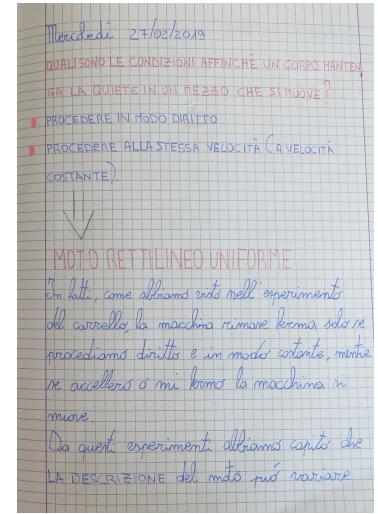 Mercoledì 27/02/2019
QUALI SONO LE CONDIZIONI AFFINCHÈ UN CORPO MANTEN
GA LA QUIETE IN UN MEZZO CHE SI MUOVE?
PROCEDERE IN MODO DIRITTO
PROCEDERE ALLA STESSA VELOCITÀ (A VELOCITÀ
COSTANTE).
MOTO RETTILINEO UNIFORME
In fatti, come abbiamo visto nell'esperimento
del carrello, la macchina rimane ferma solo se
procediamo diritto e in modo costante, mentre
se accellero o mi fermo la macchina si
muove.
Da questi esperimenti abbiamo capito che
LA DESCRIZIONE del moto può variare